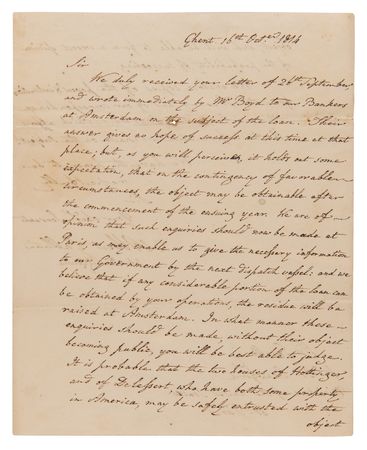 Ghent 16th Octer 1814
Sir
We duly received your letter of 26th September
and wrote immediately by Mr Boyd to our Bankers
at Amsterdam on the subject of the loan. Their
answer gives no hope of success at this time at that
place; but, as you will perceive, it holds out some
expectation, that on the contingency of favourable
circumstances, the object may be obtainable after
the commencement of the ensuing year. We are of
opinion that such enquiries should now be made at
Paris, as may enable us to give the necessary information
to our Government by the next dispatch vessel: and we
believe that if any considerable portion of the loan can
be obtained by your operations, the residue will be
raised at Amsterdam. In what manner these
enquiries should be made, without their object
becoming public, you will be best able to judge.
It is probable that the two houses of Hottinger
and of Delessert, who have both some property
in America, may be safely entrusted with the
object